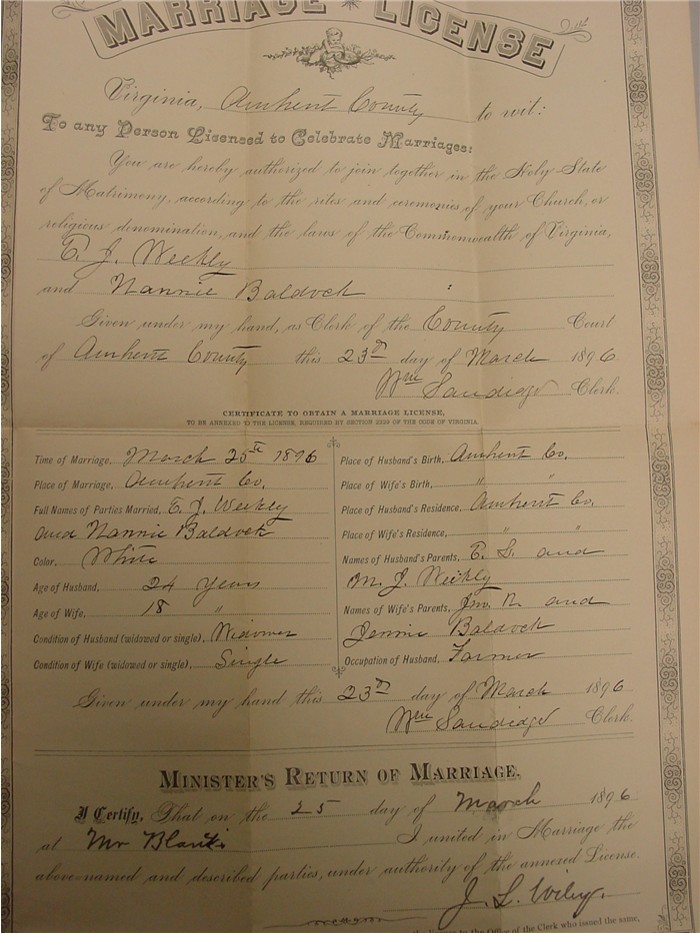 MARRIAGE LICENSE
Virginia, Amherst County to wit:
To any Person Licensed to Celebrate Marriages:
You are hereby authorized to join together in the Holy State
of Matrimony, according to the rites and ceremonies of your Church, or
religious denomination, and the laws of the Commonwealth of Virginia,
E. J. Weekly
and Nannie Baldock
Given under my hand, as Clerk of the County Court
of Amherst County this 23rd day of March 1896
Wm Sandidge Clerk.
CERTIFICATE TO OBTAIN A MARRIAGE LICENSE,
TO BE ANNEXED TO THE LICENSE, REQUIRED BY SECTION 2229 OF THE CODE OF VIRGINIA.
Time of Marriage, March 25th 1896
Place of Marriage, Amherst Co.
Full Names of Parties Married, E. J. Weekly
and Nannie Baldock
Color, White
Age of Husband, 24 years
Age of Wife, 18 "
Condition of Husband (widowed or single), Widower
Condition of Wife (widowed or single), Single
Place of Husband's Birth, Amherst Co.
Place of Wife's Birth, " "
Place of Husband's Residence, Amherst Co.
Place of Wife's Residence, " "
Names of Husband's Parents, E. S. and
M. J. Weekly
Names of Wife's Parents, Jno. R. and
Jennie Baldock
Occupation of Husband, Farmer
Given under my hand this 23rd day of March 1896
Wm Sandidge Clerk.
MINISTER'S RETURN OF MARRIAGE.
I Certify, That on the 25 day of March 1896
at Mr I united in Marriage the
above-named and described parties, under authority of the annexed License.
J. L. Wiley.
the License to the Office of the Clerk who issued the same,